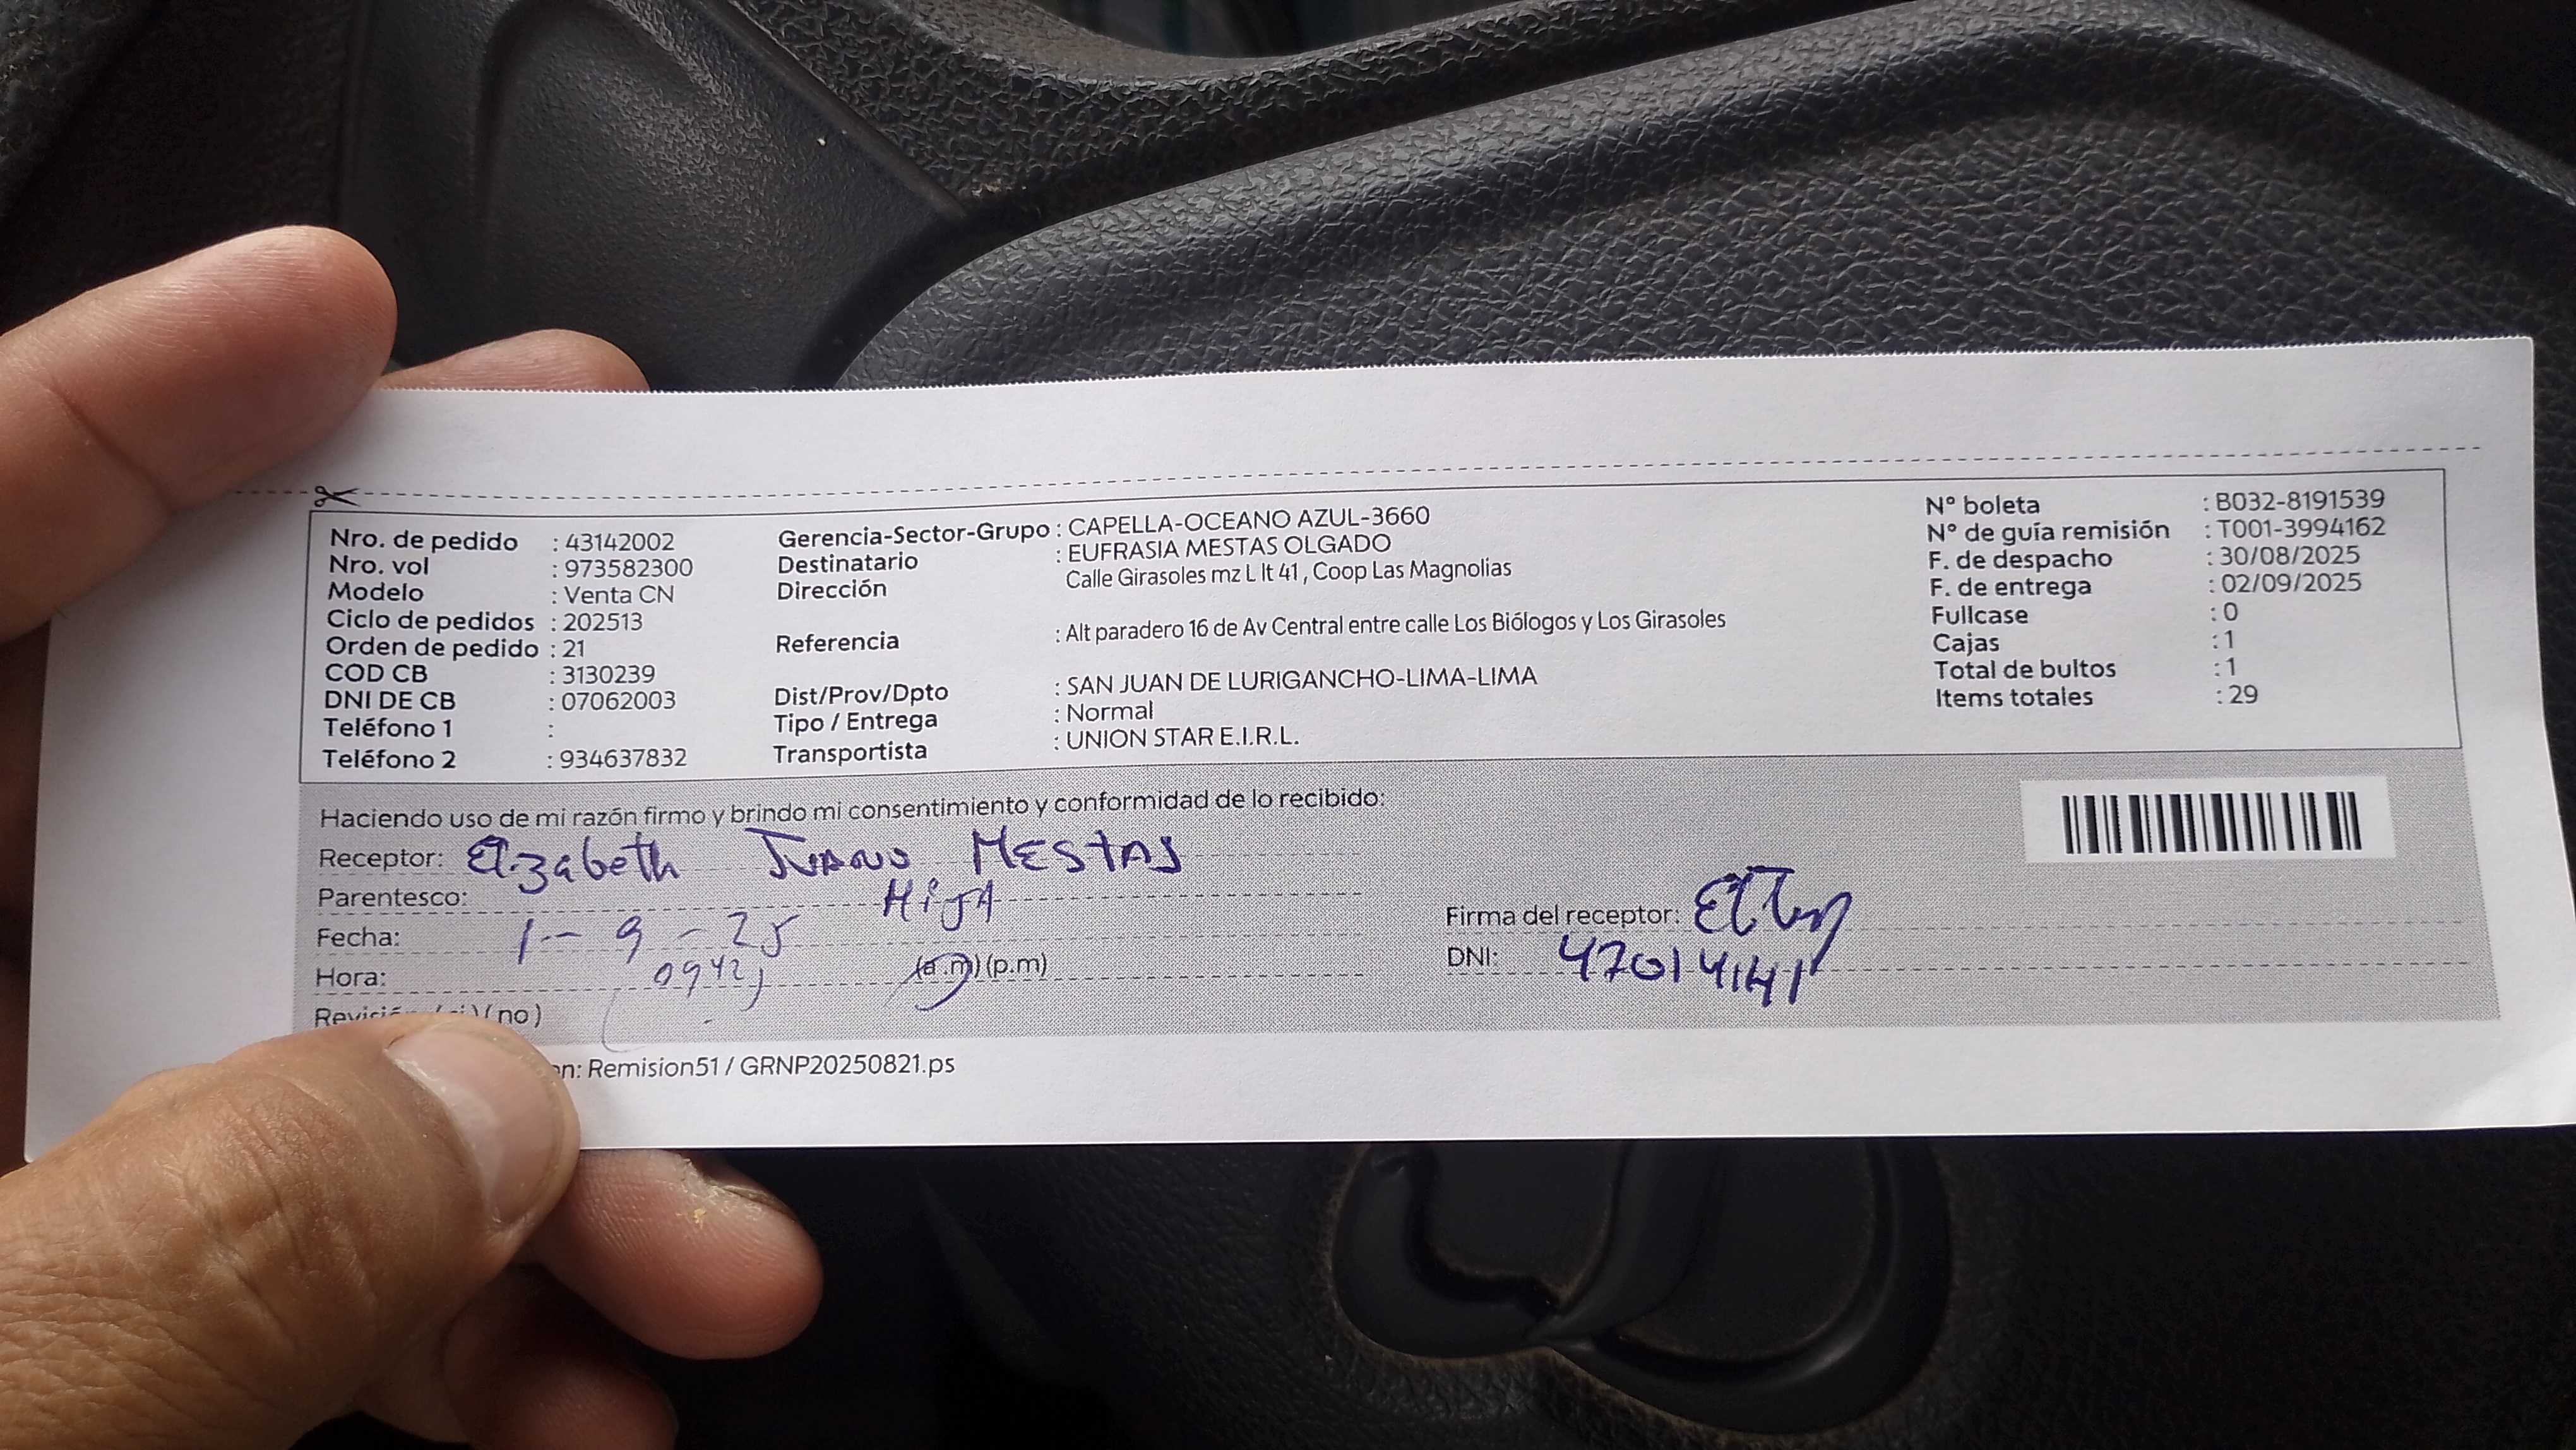 Nro. de pedido : 43142002
Nro. vol : 973582300
Modelo : Venta CN
Ciclo de pedidos : 202513
Orden de pedido : 21
COD CB : 3130239
DNI DE CB : 07062003
Teléfono 1 :
Teléfono 2 : 934637832
Gerencia-Sector-Grupo : CAPELLA-OCEANO AZUL-3660
Destinatario : EUFRASIA MESTAS OLGADO
Dirección Calle Girasoles mz L lt 41 , Coop Las Magnolias
Referencia : Alt paradero 16 de Av Central entre calle Los Biólogos y Los Girasoles
Dist/Prov/Dpto : SAN JUAN DE LURIGANCHO-LIMA-LIMA
Tipo / Entrega : Normal
Transportista : UNION STAR E.I.R.L.
N° boleta : B032-8191539
N° de guía remisión : T001-3994162
F. de despacho : 30/08/2025
F. de entrega : 02/09/2025
Fullcase : 0
Cajas : 1
Total de bultos : 1
Items totales : 29
Haciendo uso de mi razón firmo y brindo mi consentimiento y conformidad de lo recibido:
Receptor: Elizabeth MESTAS
Parentesco: HijA
Fecha: 1-9-25
Hora: 0942 (a.m) (p.m)
Revisión (si) (no)
Firma del receptor:
DNI: 47014141
Remision51 / GRNP20250821.ps